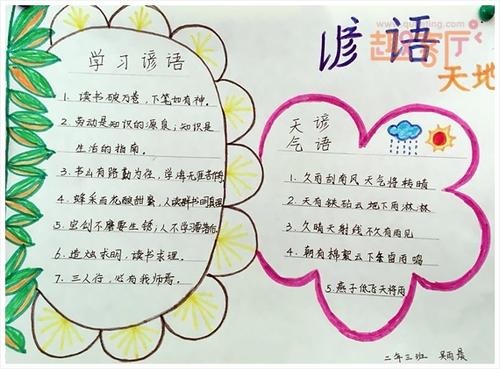 谚语
天地
学习谚语
1. 读书破万卷，下笔如有神。
2. 劳动是知识的源泉；知识是
生活的指南。
3. 书山有路勤为径，学海无涯苦作舟
4. 蜂采百花酿甜蜜，人读群书明真理
5. 宝剑不磨要生锈；人不学习要落后
6. 造烛求明，读书求理。
7. 三人行，必有我师焉。
天谚
气语
1. 久雨刮南风天气将转晴
2. 天有铁砧云地下雨淋淋
3. 久晴天射线不久有雨见
4. 朝有棉絮云下午雷雨鸣
5. 燕子低飞天将雨
二年三班 吴雨晨